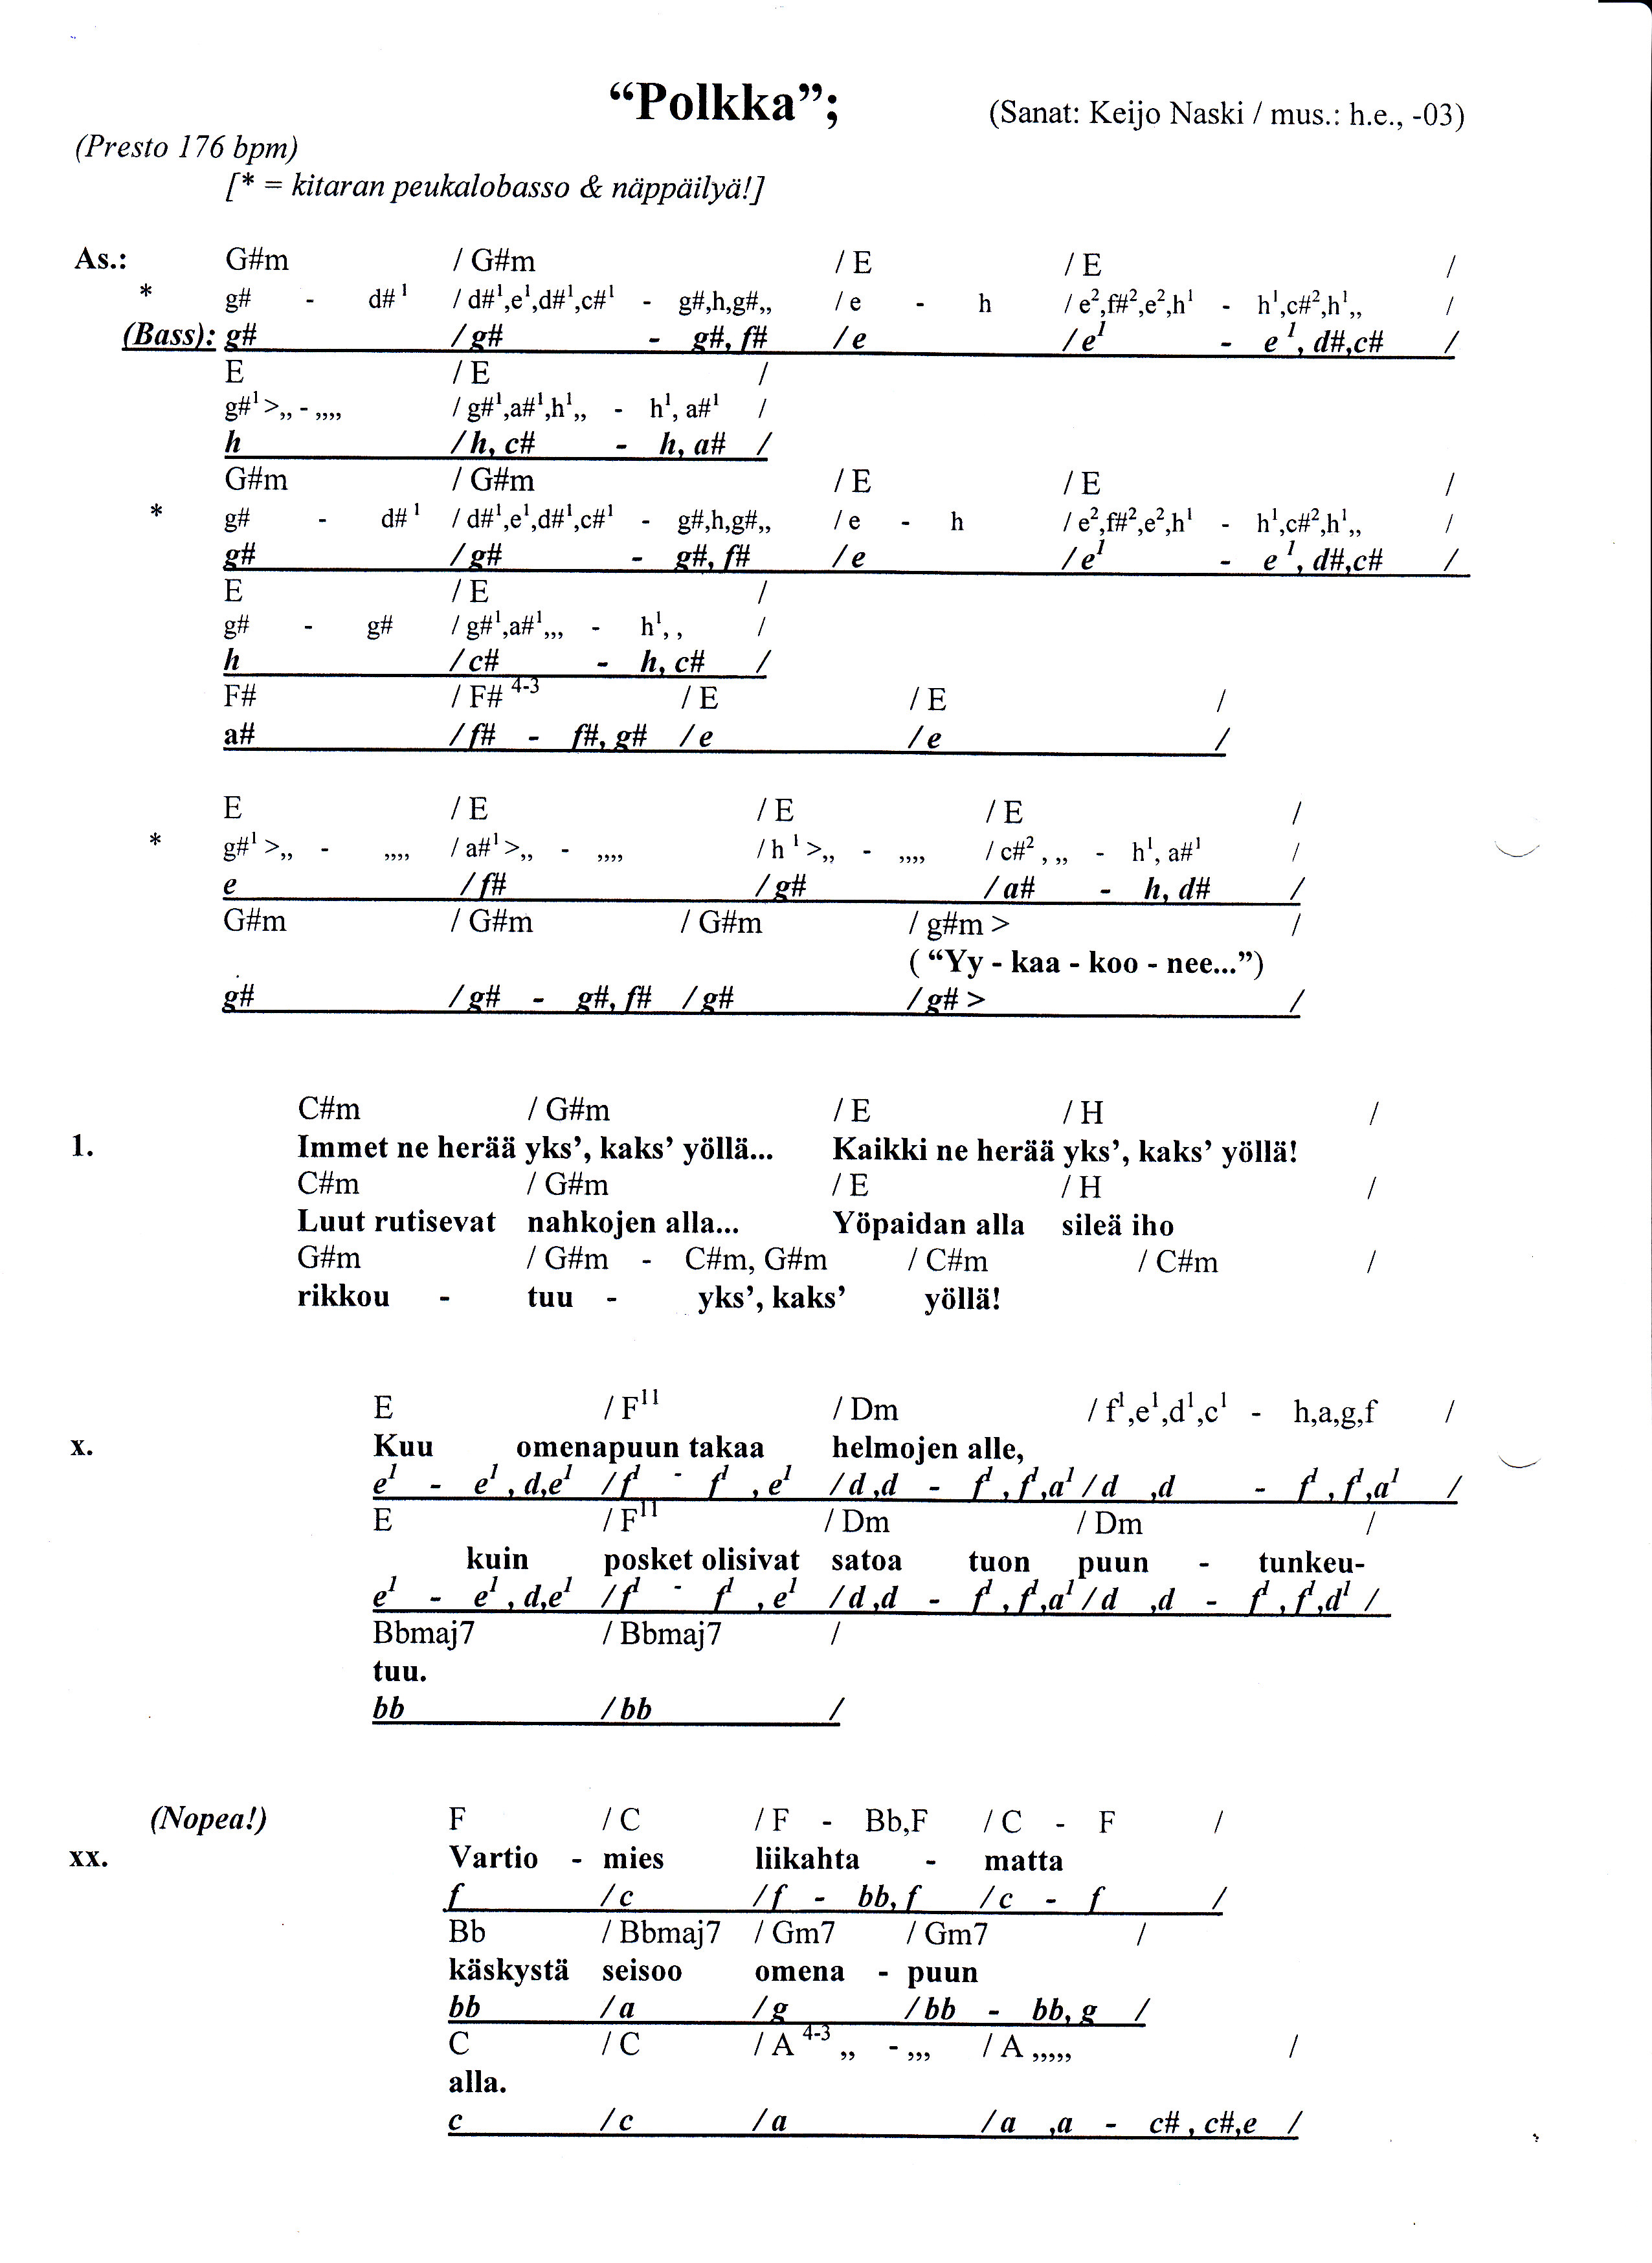 “Polkka”; (Sanat: Keijo Naski / mus.: h.e., -03)
(Presto 176 bpm)
[* = kitaran peukalobasso & näppäilyä!]
As.: G#m / G#m / E / E /
* g# - d#¹ / d#¹,e¹,d#¹,c#¹ - g#,h,g#,, / e - h / e²,f#²,e²,h¹ - h¹,c#²,h¹,, /
(Bass): g# / g# - g#, f# / e / e¹ - e¹, d#,c# /
E / E /
g#¹ >,, - ,,,, / g#¹,a#¹,h¹,, - h¹, a#¹ /
h / h, c# - h, a# /
G#m / G#m / E / E /
* g# - d#¹ / d#¹,e¹,d#¹,c#¹ - g#,h,g#,, / e - h / e²,f#²,e²,h¹ - h¹,c#²,h¹,, /
g# / g# - g#, f# / e / e¹ - e¹, d#,c# /
E / E /
g# - g# / g#¹,a#¹,,, - h¹, , /
h / c# - h, c# /
F# / F# ⁴⁻³ / E / E /
a# / f# - f#, g# / e / e /
E / E / E / E /
* g#¹ >,, - ,,,, / a#¹>,, - ,,,, / h ¹ >,, - ,,,, / c#² , ,, - h¹, a#¹ /
e / f# / g# / a# - h, d# /
G#m / G#m / G#m / g#m > /
( “Yy - kaa - koo - nee...”)
g# / g# - g#, f# / g# / g# > /
C#m / G#m / E / H /
1. Immet ne herää yks’, kaks’ yöllä... Kaikki ne herää yks’, kaks’ yöllä!
C#m / G#m / E / H /
Luut rutisevat nahkojen alla... Yöpaidan alla sileä iho
G#m / G#m - C#m, G#m / C#m / C#m /
rikkou - tuu - yks’, kaks’ yöllä!
E / F¹¹ / Dm / f¹,e¹,d¹,c¹ - h,a,g,f /
x. Kuu omenapuun takaa helmojen alle,
e¹ - e¹, d,e¹ / f¹ - f¹ , e¹ / d ,d - f¹ , f¹,a¹ / d ,d - f¹ , f¹,a¹ /
E / F¹¹ / Dm / Dm /
kuin posket olisivat satoa tuon puun - tunkeu-
e¹ - e¹, d,e¹ / f¹ - f¹ , e¹ / d ,d - f¹ , f¹,a¹ / d ,d - f¹ , f¹,d¹ /
Bbmaj7 / Bbmaj7 /
tuu.
bb / bb /
(Nopea!) F / C / F - Bb,F / C - F /
xx. Vartio - mies liikahta - matta
f / c / f - bb, f / c - f /
Bb / Bbmaj7 / Gm7 / Gm7 /
käskystä seisoo omena - puun
bb / a / g / bb - bb, g /
C / C / A ⁴⁻³ ,, - ,,, / A ,,,,, /
alla.
c / c / a / a ,a - c# , c#,e /